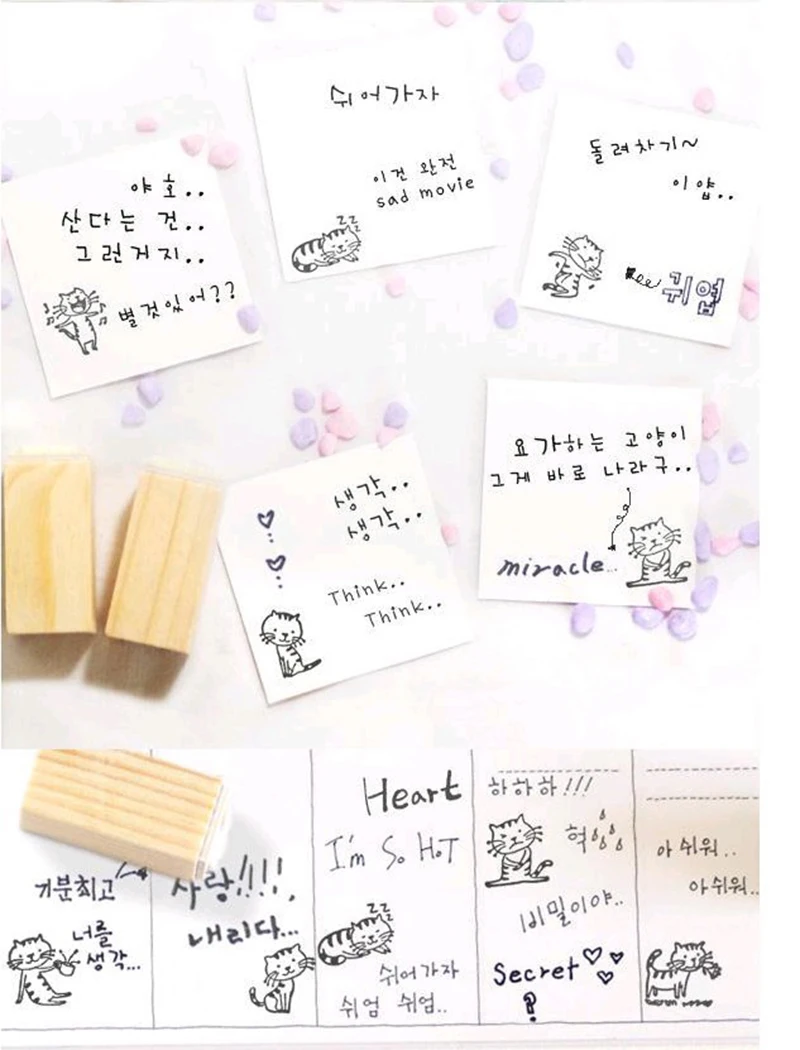 쉬어가자
이건 완전
sad movie
zz
돌려차기~
이얍..
귀엽
야호..
산다는 건..
그런거지..
별것있어??
요가하는 고양이
그게 바로 나라구..
miracle...
생각..
생각..
Think..
Think..
기분최고
너를
생각...
사랑!!!!.
내리다...
Heart
I'm So HoT
zz
쉬어가자
쉬엄 쉬엄..
하하하!!!
헉
비밀이야..
Secret
?
아쉬워..
아쉬워..